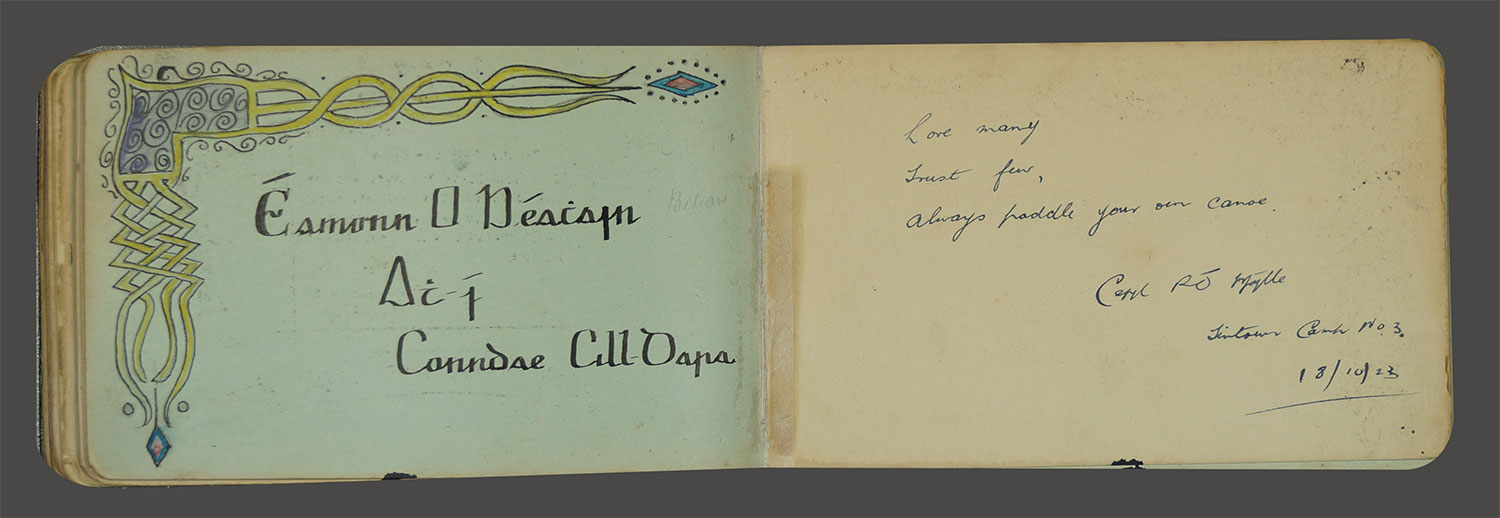 Éamonn O
Behan
Aṫ-í
Conndae Cill-Dara
Love many
Trust few,
Always paddle your own canoe.
Tintown Camp No. 3.
18/10/23